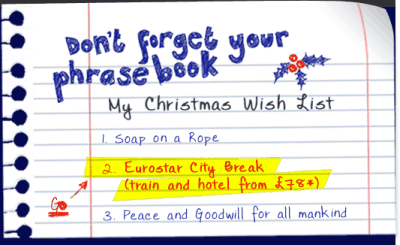 Don't forget your
phrase book
My Christmas Wish List
1. Soap on a Rope
2. Eurostar City Break
(train and hotel from £78*)
Go
3. Peace and Goodwill for all mankind